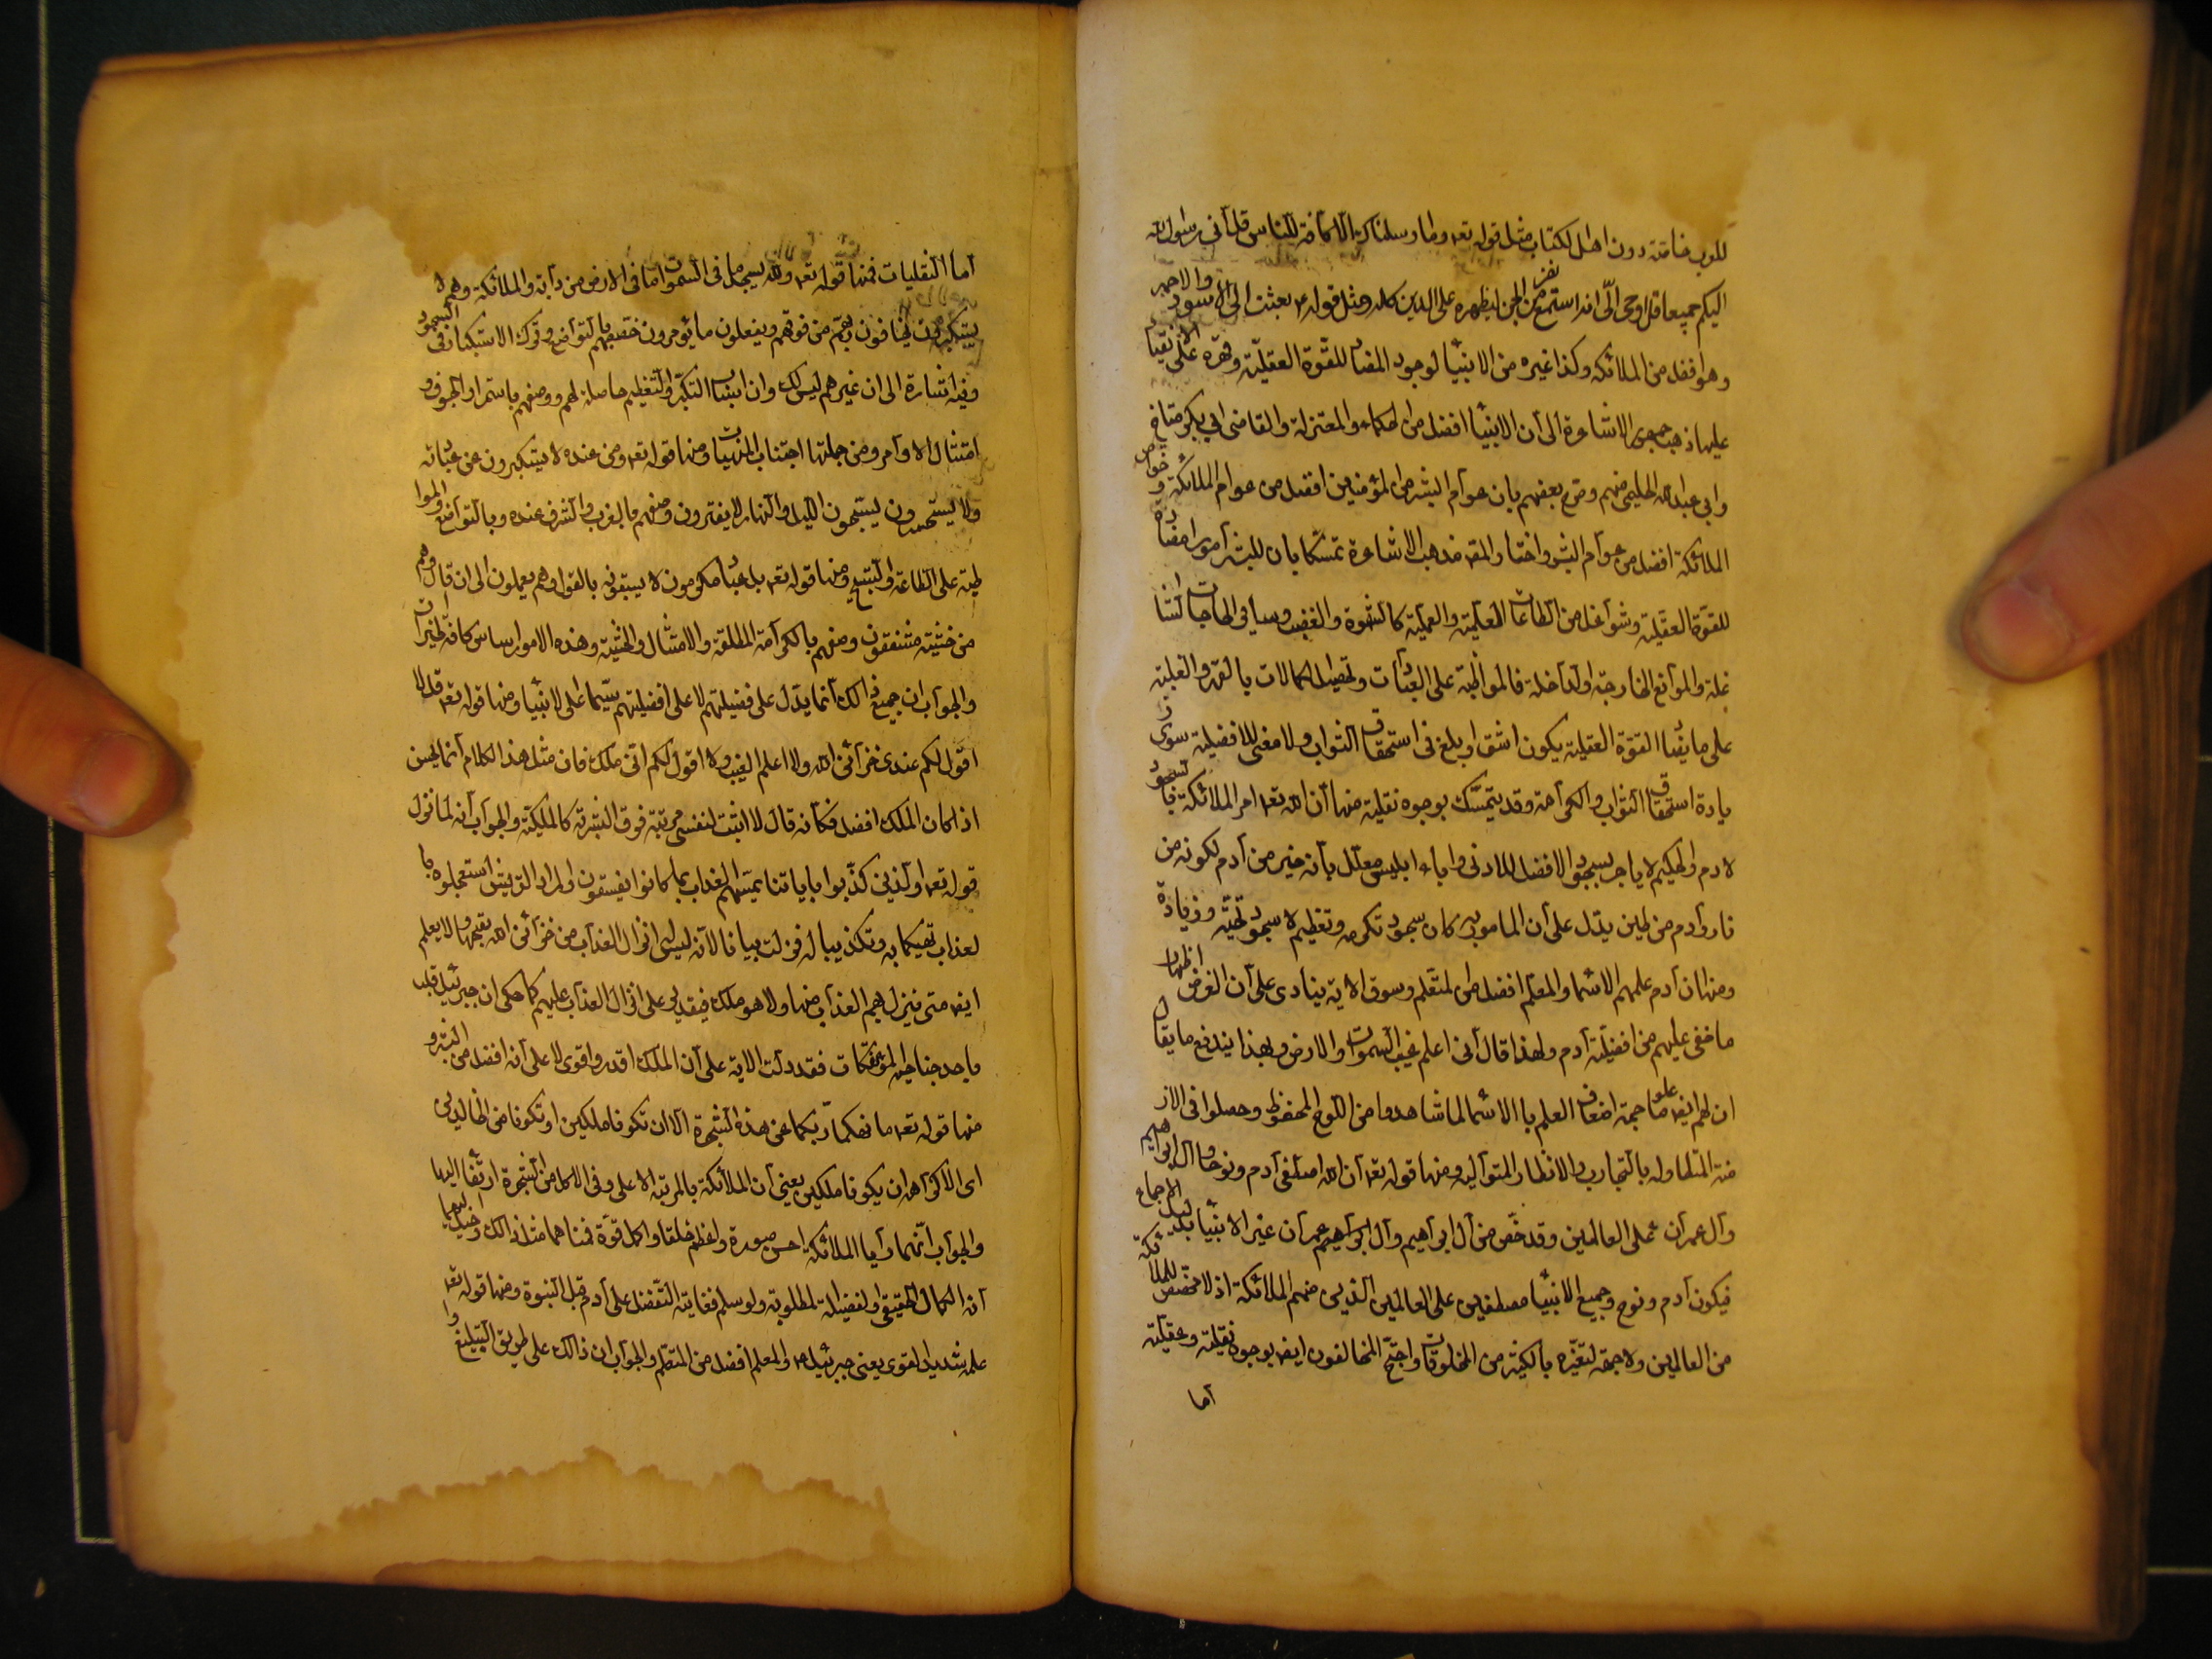 للعرب خاصة دون اهل الكتاب مثل قوله تعـ وما ارسلناك الا كافة للناس قل اني رسول الله
اليكم جميعا قل اوحى الّى انه استمع نفر من الجن ليظهره على الدين كله ومثل قوله ء بعثت الى الاسود والاحمر
وهو افضل من الملائكه وكذا غيره من الانبيا لوجود المضاد للقوة العقلية وقهره على الانقياد
عليها ذهب جمهور الاشاعرة الى ان الانبيا افضل من الملائكة الحكماء والمعتزلة والقاضي ابي بكر
وابي عبد الله الحليمي منهم وصرح بعضهم بان عوام البشر من المؤمنين افضل من عوام الملائكة وخواص
الملائكة افضل من عوام البشر واختار المصـ مذهب الاشاعرة تمسكا بان للبشر امورا مضادة
للقوة العقلية وشواغل من الطاعات العلمية والعملية كالشهوة والغضب وساير الحاجات الشا
غلة والموانع الخارجة والداخلة فالمواظبة على العبادات وتحصيل الكمالات بالقهر والغلبة
على ما يضاد القوة العقلية يكون اشق وابلغ في استحقاق الثواب ولا معنى للافضلية سوى ز
يادة استحقاق الثواب والكرامة وقد يتمسك بوجوه نقلية منها ان الله تعـ امر الملائكة بالسجود
لادم والحكيم لا يامر بسجود الافضل للادنى واباء ابليس معلل بانه خير من آدم لكونه من
نار وآدم من طين يدل على ان المامور به كان سجود تكرمة وتعظيم لا سجود تحية وزيادة
ومنها ان آدم علمهم الاسما والمعلم افضل من المتعلم وسوق الاية ينادى على ان الغرض اظهار
ما خفى عليهم من افضلية آدم ولهذا قال اني اعلم غيب السموات والارض وبهذا يندفع ما يقال
ان لهم ايضـ علوما جمة اضعاف العلم بالاسما لما شاهدوا من اللوح المحفوظ وحصلوا في الاز
منة المتطاولة بالتجارب والانظار المتوالية ومنها قوله تعـ ان الله اصطفى آدم ونوحا وال ابراهيم
وآل عمران على العالمين وقد خص من آل ابراهيم وآل عمران غير الانبيا بدليل الاجماع
فيكون آدم ونوح وجميع الانبيا مصطفين على العالمين الذين منهم الملائكة اذ لا مخصص للملائكة
من العالمين ولا جهة لتفسيره بالكثير من المخلوقات واحتج المخالفون ايضـ بوجوه نقلية وعقلية
اما
اما النقليات فمنها قوله تعـ ولله يسجد ما في السموات وما في الارض من دابة والملائكة وهم لا
يستكبرون يخافون ربهم من فوقهم ويفعلون ما يؤمرون خصهم بالتواضع وترك الاستكبار في السجود
وفيه اشارة الى ان غيرهم ليس كك وان اسباب التكبر والتعظيم حاصلة لهم ووصفهم باستمرار الخوف و
امتثال الاوامر ومن جملتها اجتناب المنهيات ومنها قوله تعـ ومن عنده لا يستكبرون عن عبادته
ولا يستحسرون يسبحون الليل والنهار لا يفترون وصفهم بالقرب والشرف عنده وبالتواضع والموا
ظبة على الطاعة والتسبيح ومنها قوله تعـ بل عباد مكرمون لا يسبقونه بالقول وهم يعملون الى ان قال وهم
من خشيته مشفقون وصفهم بالكرامة المطلقة والامتثال والخشية وهذه الامور اساس كافة الخيرات
والجواب ان جميع ذالك انما يدل على فضيلتهم لا على افضليتهم سيما على الانبيا ومنها قوله تعـ قل لا
اقول لكم عندى خزائن الله ولا اعلم الغيب ولا اقول لكم اني ملك فان مثل هذا الكلام انما يحسن
اذا كان الملك افضل فكانه قال لا اثبت لنفسي مرتبة فوق البشرية كالملكية والجواب انه لما نزل
قوله تعـ والذين كذبوا باياتنا يمسهم العذاب بما كانوا يفسقون والمراد القريش استعجلوه با
لعذاب تهكما به وتكذيبا له فنزلت بيانا لانه ليس له انزال العذاب من خزائن الله بفتحها ولا يعلم
ايضـ متى ينزل بهم العذاب منها ولا هو ملك فيقدر على انزال العذاب عليهم كما حكى ان جبرئيل قلب
باحد جناحيه المؤتفكات فقد دلت الاية على ان الملك اقدر واقوى لا على انه افضل من البشر و
منها قوله تعـ ما نهيكما ربكما عن هذه الشجرة الا ان تكونا ملكين او تكونا من الخالدين
اى الا كراهة ان يكونا ملكين يعني ان الملائكة بالمرتبة الاعلى وفي الاكل من الشجرة ارتقاء اليها
والجواب انهما رأيا الملائكة احسن صورة واعظم خلقا واكمل قوة فمناهما مثل ذالك وخيل اليهما
انه الكمال الحقيقي والفضيلة المطلوبة ولو سلم فغايته التفضل على آدم قبل النبوة ومنها قوله تعـ
علمه شديد القوى يعني جبرئيل ء والمعلم افضل من المتعلم والجواب ان ذالك على طريق التبليغ وا